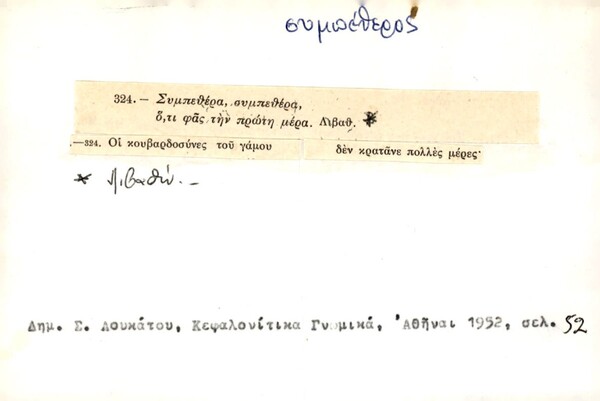 συμπέθερος
324.— Συμπεθέρα, συμπεθέρα,
ὅ,τι φᾶς τὴν πρώτη μέρα. Λιβαθ. *
.—324. Οἱ κουβαρδοσύνες τοῦ γάμου δὲν κρατᾶνε πολλὲς μέρες·
* Λιβαθώ. –
Δημ. Σ. Λουκάτου, Κεφαλονίτικα Γνωμικά, Ἀθῆναι 1952, σελ. 52